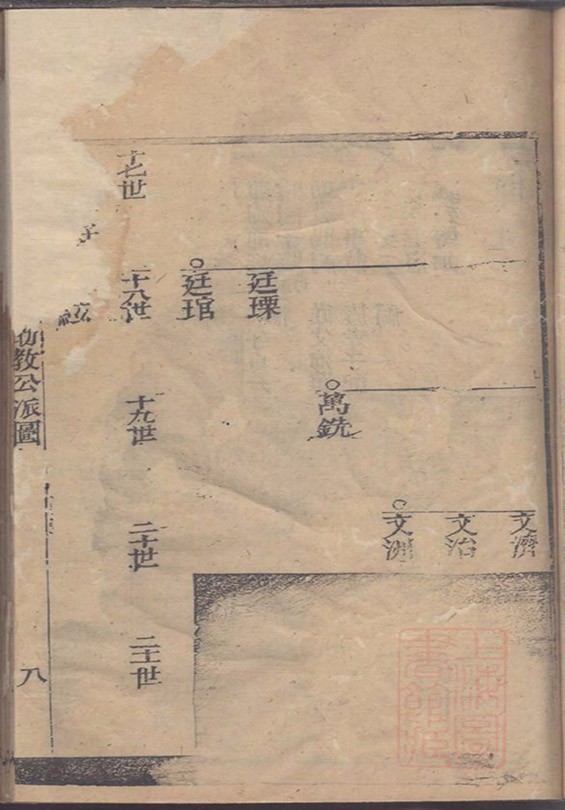 十七世
十八世
十九世
二十世
二十一世
廷琯
廷瑮
萬銑
文洲
文治
文濟
教公派圖
八
上海圖書館藏